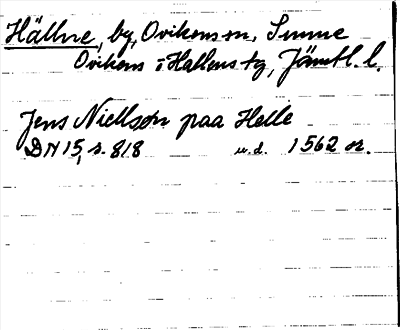 Hällne, by, Ovikens sn, Sunne
Ovikens o Hallens tg, Jämtl. l.
Jens Niellson paa Helle
DN 15, s. 818 u.d. 1562 or.